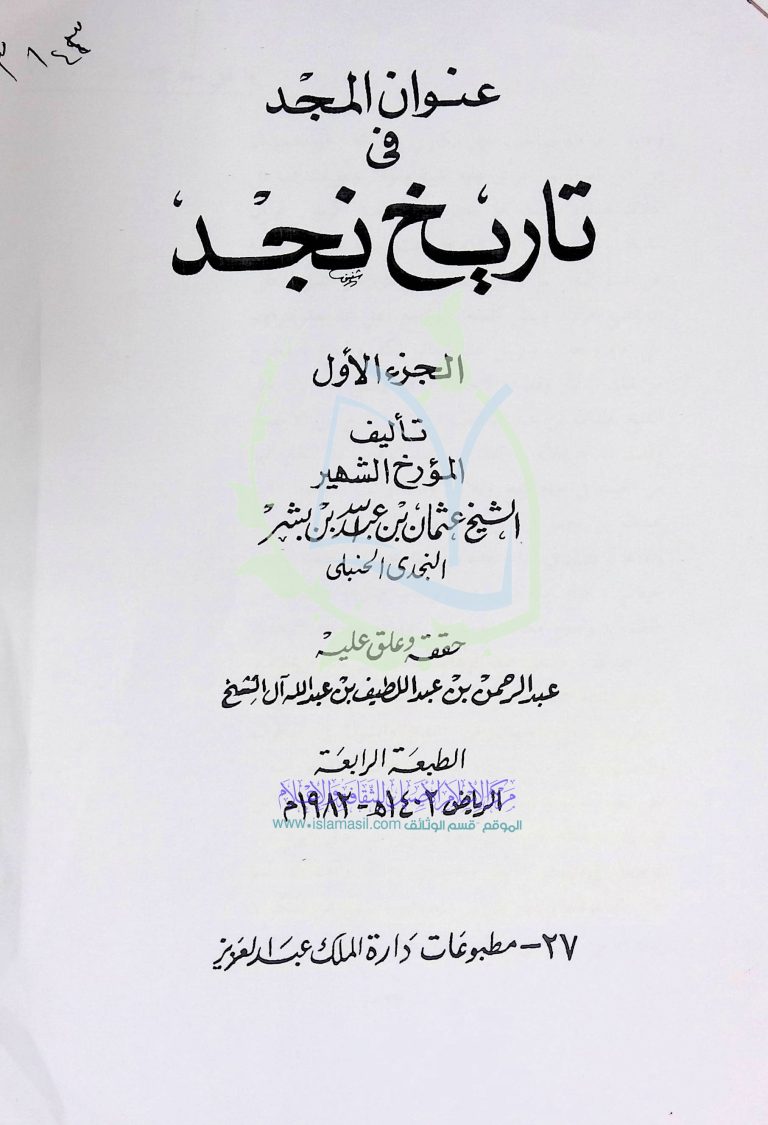 ٣١٤٣
عنوان المجد
فى
تاريخ نجد
الجزء الأول
تأليف
المؤرخ الشهير
الشيخ عثمان بن عبدالله بن بشر
النجدى الحنبلى
حققه وعلق عليه
عبدالرحمن بن عبداللطيف بن عبدالله آل الشيخ
الطبعة الرابعة
الرياض ١٤٠٢هـ - ١٩٨٢م
الموقع - قسم الوثائق www.islamasil.com
٢٧ - مطبوعات دارة الملك عبدالعزيز